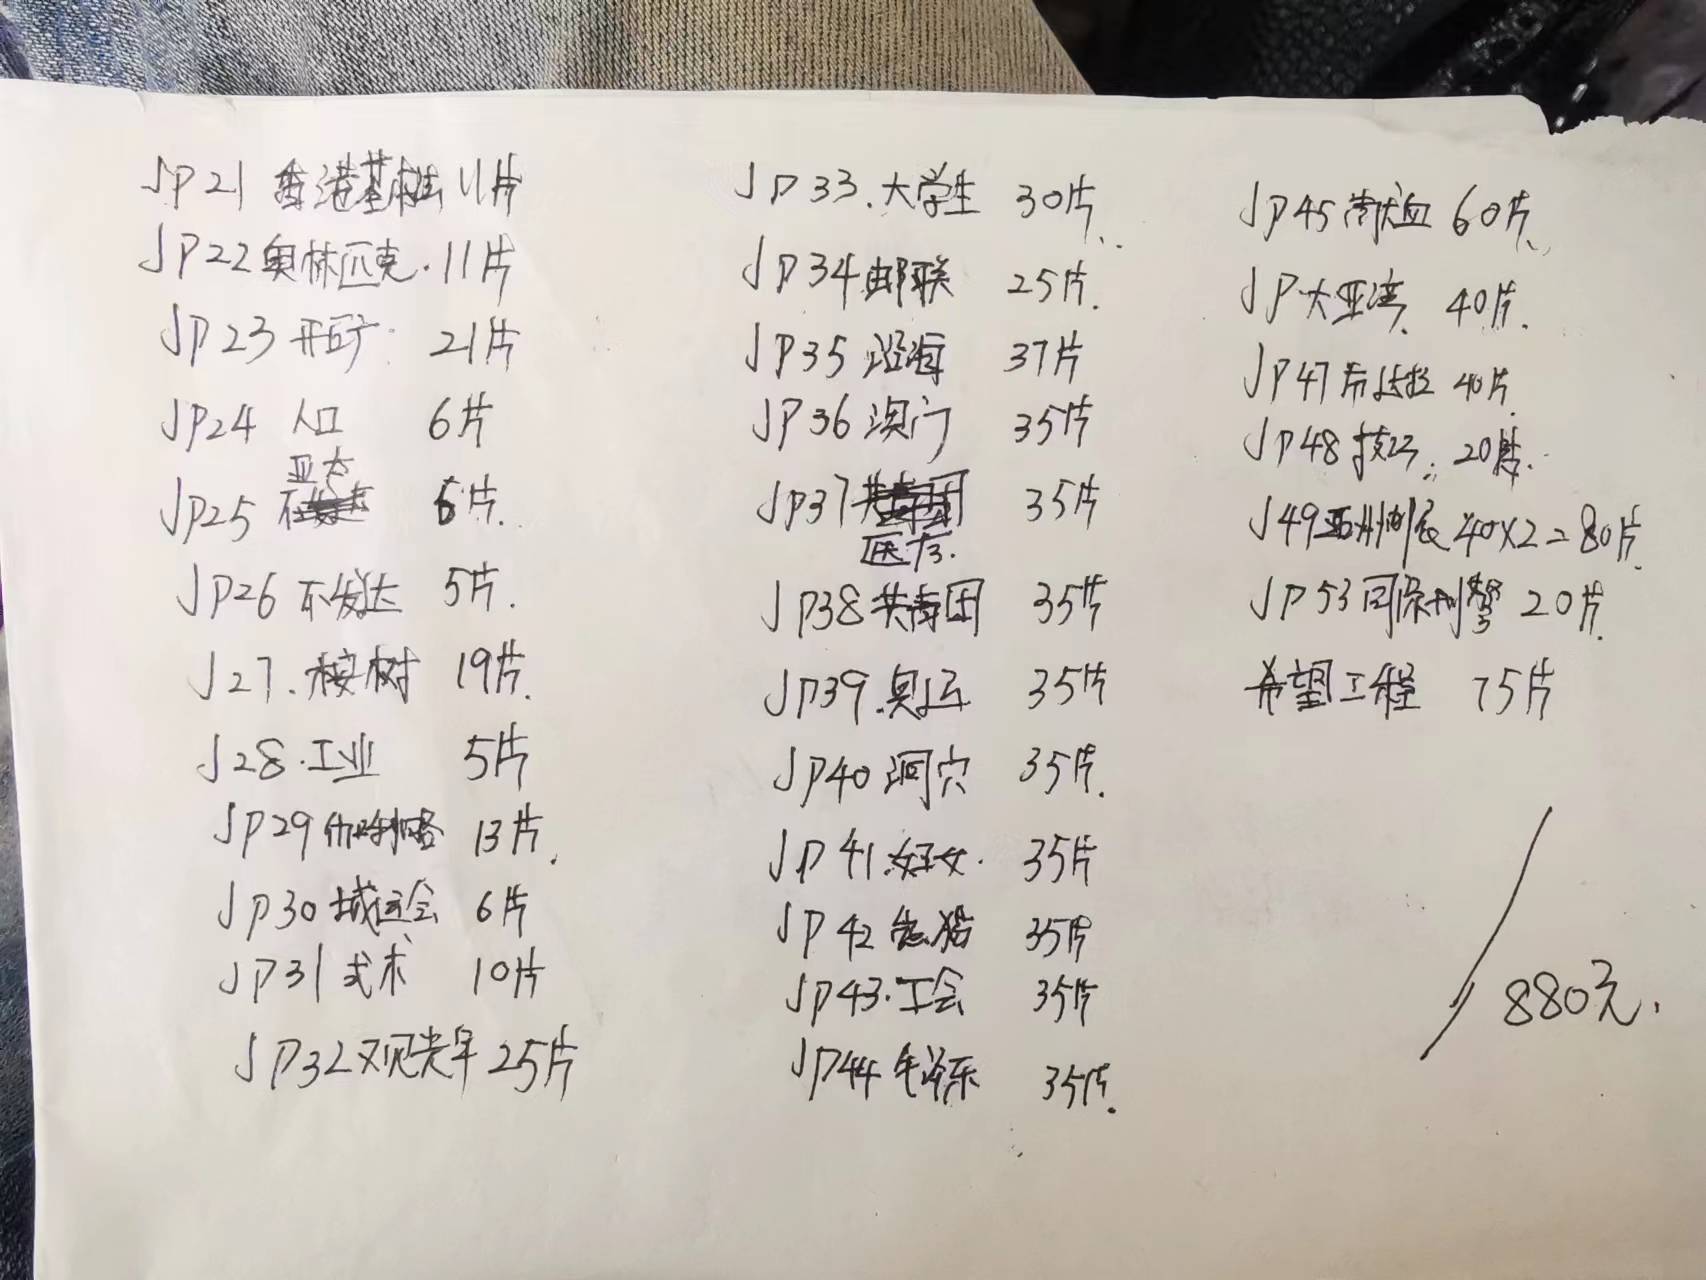 JP21 香港基本法 11片
JP22 奥林匹克. 11片
JP23 开矿. 21片
JP24 人口 6片
亚太
JP25 6片.
JP26 不发达 5片.
J27. 桉树 19片.
J28. 工业 5片
JP29 伽利略 13片.
JP30 城运会 6片
JP31 武术 10片
JP32 观光年 25片
JP33. 大学生 30片.
JP34 邮联 25片.
JP35 沿海 37片
JP36 澳门 35片
JP37 35片
医药.
JP38 共青团 35片
JP39. 奥运 35片
JP40 洞穴 35片.
JP41. 妇女. 35片
JP42 熊猫 35片
JP43. 工会 35片
JP44 毛泽东 35片.
JP45 献血 60片.
JP 大亚湾. 40片.
JP47 布达拉 40片.
JP48 技巧. 20片.
J49 亚洲邮展 40X2=80片.
JP53 国际刑警 20片.
希望工程 75片
880元.